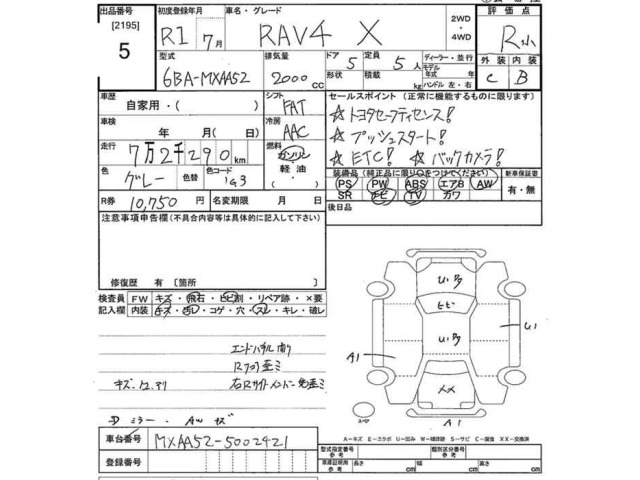 出品番号 初度登録年月 車名・グレード 2WD ・ 4WD 評価点
[2195]
5 R1 7月 RAV4 X R
型式 排気量 ドア 定員 ディーラー・並行 外装 内装
6BA-MXAA52 2000cc 5 5人 モデル年式 年 C B
形状 積載 kg ハンドル 左・右
車歴 シフト セールスポイント(正常に機能するものに限ります)
自家用・( ) FAT ☆トヨタセーフティセンス!
車検 冷房 ☆プッシュスタート!
年 月(日) AAC ☆ETC! ☆バックカメラ!
走行 燃料
7万2千290km ガソリン
色 色替 色コード 軽油
グレー 1G3 ・( )
装備品(純正品に限り○をつけてください) 新車保証書
PS PW ABS エアB AW 有・無
SR ナビ TV カワ
R券 10,750円 名変期限 月 日 後日品
注意事項申告欄(不具合内容等は具体的に記入して下さい)
修復歴 有 〔箇所 〕
検査員 FW キズ・飛石・ヒビ割・リペア跡・×要
記入欄 内装 キズ・汚レ・コゲ・穴・スレ・キレ・破レ
エンドパネル
キズ・
ミラー・AWキズ
U・多
ヒビ
U・多
××
A1
U1
A1
A-キズ E-エクボ U-凹み W-補修跡 S-サビ C-腐食 XX-交換済
車台番号 MXAA52-5002421
登録番号
型式指定番号 類別区分番号
車庫証明用参考 長さ cm 幅 cm 高さ cm